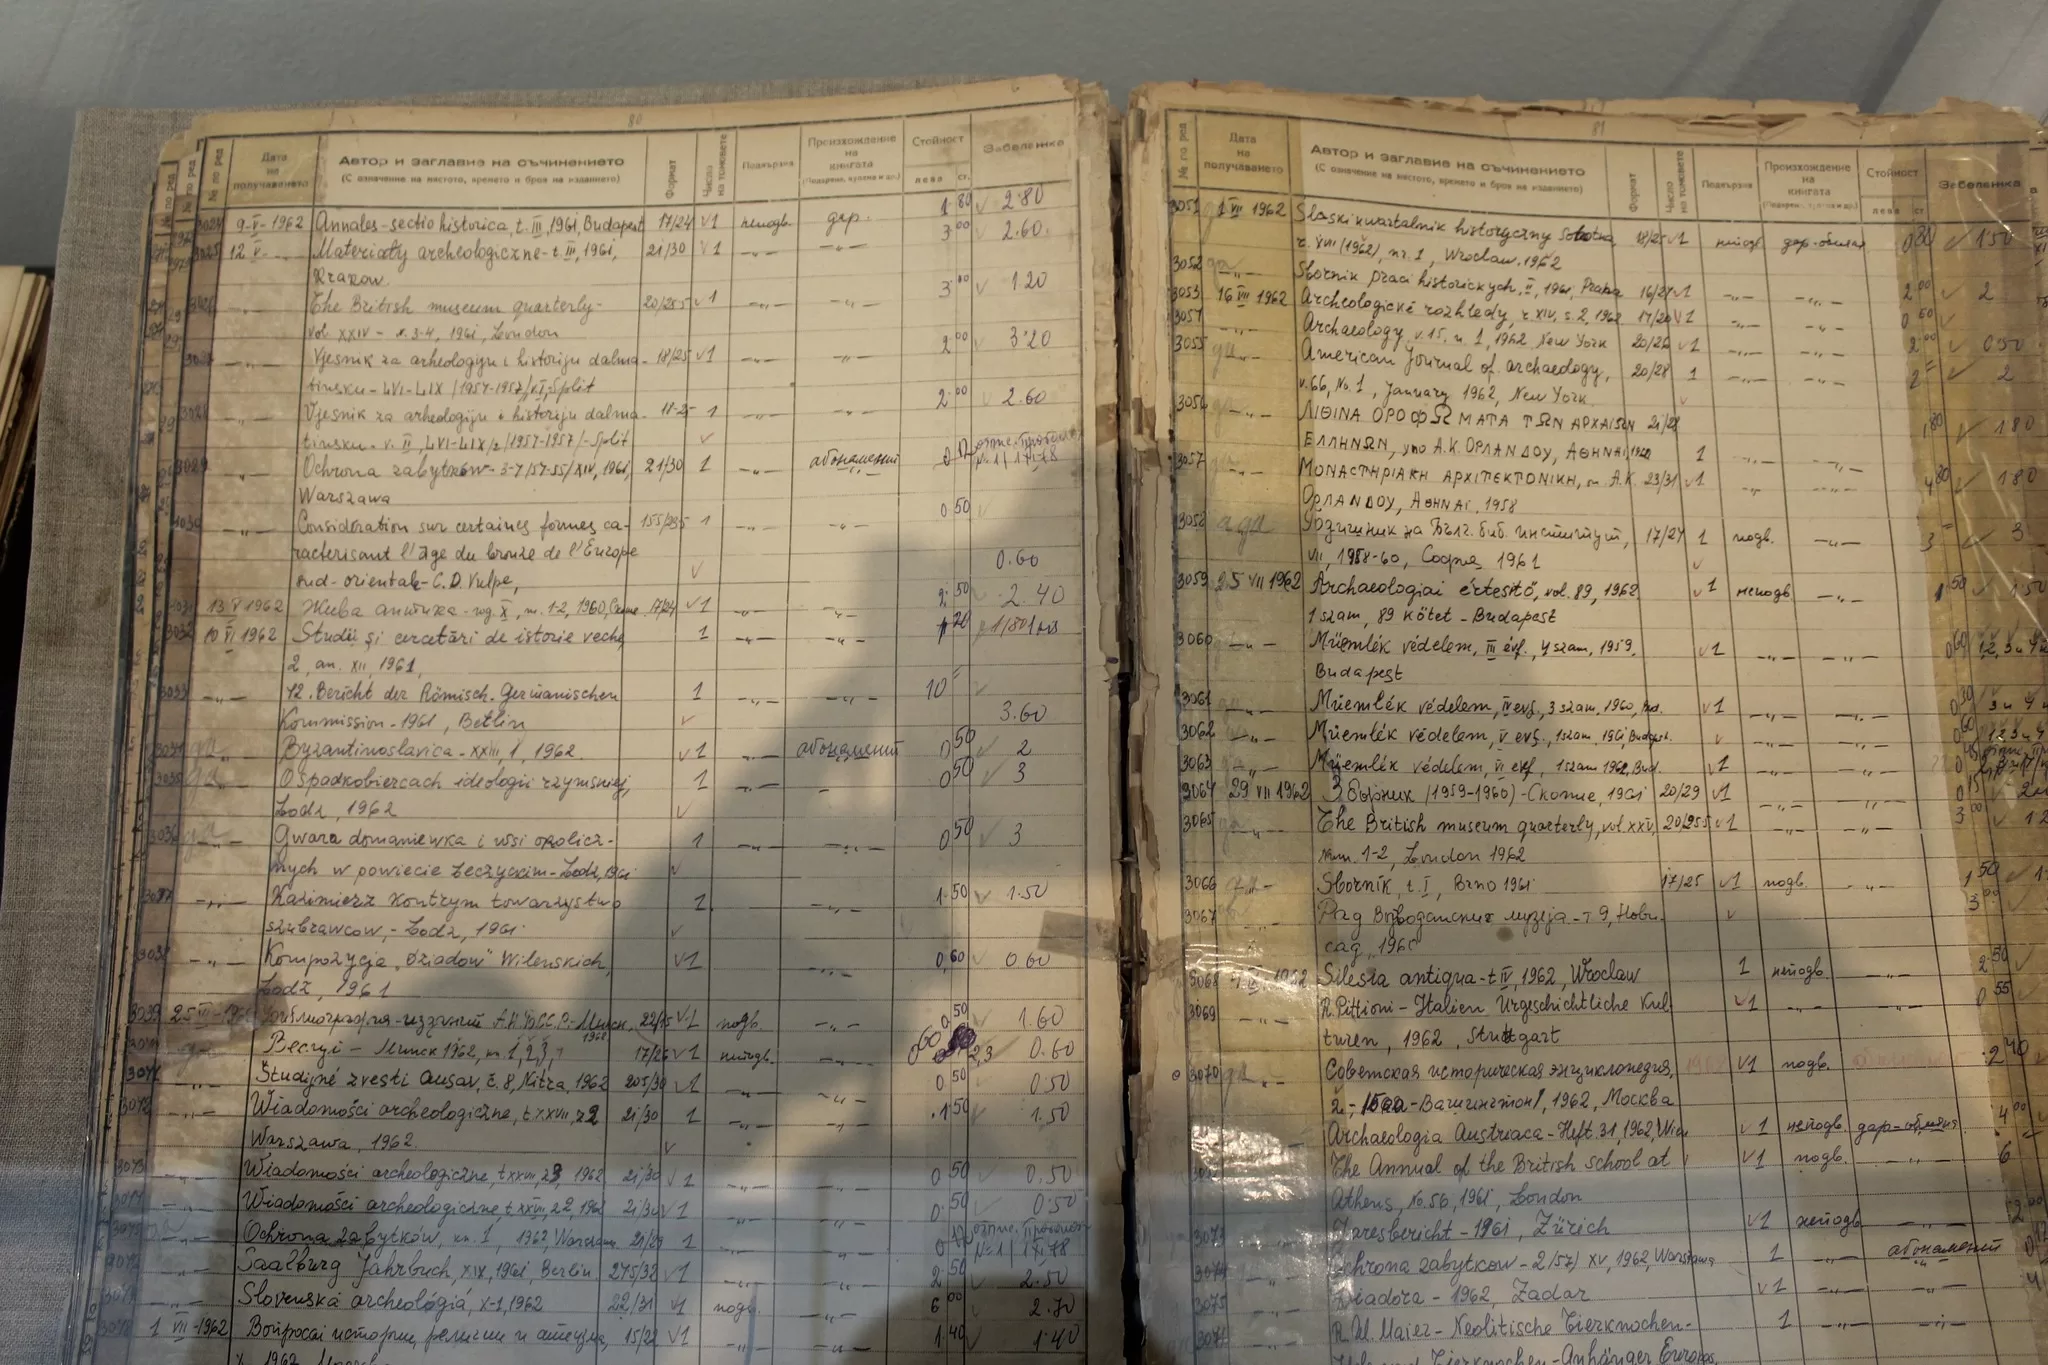 80
№ по ред
Дата на получаването
Автор и заглавие на съчинението
(С означение на мястото, времето и броя на изданието)
Формат
Число на томовете
Подвързия
Произхождение на книгата
Стойност
лева ст.
Забележка
3024 9-V-1962 Annales-sectio historica, t. III, 1961, Budapest 17/24 √1 неподв. дар. 1 80 √ 2.80
3025 12 V Materiały archeologiczne-t. III, 1961, 21/30 √1 —„— —„— 3 00 √ 2.60.
Krakow.
The British museum quarterly- 20/255 √1 —„— —„— 3 00 √ 1 20
vol XXIV - n. 3-4, 1961, London
—„— Vjesnik za arheologiju i historiju dalma- 18/25 √1 —„— —„— 2 00 √ 3 20
tinsku-LVI-LIX/1954-1957/ Split
—„— Vjesnik za arheologiju i historiju dalma- 18-25 1 —„— —„— 2 00 √ 2.60
tinsku-v. II, LVI-LIX/2/1954-1957/-Split √
3029 —„— Ochrona zabytków- XIV, 1961, 21/30 1 —„— абонамент 0 12
Warszawa
3030 —„— Considération sur certaines formes ca- 155/235 1 —„— —„— 0 50 √
racterisant l'âge du bronze de l'Europe 0.60
sud-orientale-C.D. Vulpe, √
3031 13 V 1962 Жива антика-год X, т. 1-2, 1960, 17/24 √1 —„— —„— 2 50 √ 2 40
3032 10 VI 1962 Studii și cercetări de istorie veche, 1 —„— —„— 1 20
2, an. XII, 1961,
3033 —„— 42. Bericht der Römisch. Germanischen 1 —„— —„— 10 = √
Kommission-1961, Berlin √ 3.60
3034 —„— Byzantinoslavica-XXIII, 1, 1962. √1 —„— абонамент 0 50 √ 2
3035 —„— O spadkobiercach ideologii rzymskiej, 1 —„— —„— 0 50 √ 3
Lodz, 1962 √
3036 —„— Gwara domaniewka i wsi okolicz- 1 —„— —„— 0 50 √ 3
nych w powiecie Łeczyckim-Lodz, 1961 √
3037 —„— Kazimierz Kontrym towarzystwo 1 —„— —„— 1.50 √ 1.50
szubrawcow,-Lodz, 1961 √
3038 —„— Kompozycja „Dziadow" Wilenskich, √1 —„— —„— 0,60 √ 0 60
Lodz, 1961
3039 25 VII-1962 22/15 √1 подв. —„— 0 50 √ 1.60
3040 Весці-Минск 1962, кн. 1, 2, 3, 17/26 √1 неподв. —„— 0 60 2,3 0.60
3041 —„— Študijné zvesti Ausav, č. 8, Nitra, 1962 205/30 √1 —„— —„— 0 50 √ 0 50
3042 —„— Wiadomości archeologiczne, t. XXVII, z 2 21/30 1 —„— —„— 1 50 √ 1.50
Warszawa, 1962. √
3043 —„— Wiadomości archeologiczne, t XXVII, z3, 1962 21/30 √1 —„— —„— 0 50 √ 0,50
3044 —„— Wiadomości archeologiczne, t. XXVIII, z2, 1962 21/30 √1 —„— —„— 0. 50 √ 0.50
3045 —„— Ochrona zabytków, кн. 1, 1962, Warszawa 21/29 1 —„— —„— 0 12
3046 —„— Saalburg Jahrbuch, XIX, 1961 Berlin 275/32 √1 —„— —„— 2 50 √ 2.50
3047 —„— Slovenská archeológiá, X-1, 1962 22/31 √1 подв. —„— 6 00 √ 2.70
3048 1 VII-1962 Вопросы истории, религии и атеизма, 15/22 √1 —„— —„— 1.40 √ 1 40
1962
81
№ по ред
Дата на получаването
Автор и заглавие на съчинението
(С означение на мястото, времето и броя на изданието)
Формат
Число на томовете
Подвързия
Произхождение на книгата
Стойност
лева ст
Забележка
3051 1 VII 1962 Slaski kwartalnik historyczny Sobotka 18/25 √1 неподв дар-обмяна 0 80 √ 1 50
r. XVII (1962), nr. 1, Wroclaw. 1962
3052 —„— Sbornik praci historickych, II, 1961, Praha 16/24 √1 —„— —„— 2 00 √ 2
3053 16 VII 1962 Archeologické rozhledy, r. XIV, s. 2, 1962 17/24 √1 —„— —„— 0 60 √
3054 —„— Archaeology v. 15, n. 1, 1962 New York 20/26 √1 —„— —„— 2 00 √ 0 50
3055 —„— American Journal of archaeology, 20/28 1 —„— —„— 2 = √ 2
v. 66, No. 1, January 1962, New York. √
3056 —„— ΛΙΘΙΝΑ ΟΡΟΦΩΜΑΤΑ ΤΩΝ ΑΡΧΑΙΩΝ 21/28 1 80 √ 1 80
ΕΛΛΗΝΩΝ, υπο Α.Κ. ΟΡΛΑΝΔΟΥ, ΑΘΗΝΑΙ 1 —„— —„—
3057 —„— ΜΟΝΑΣΤΗΡΙΑΚΗ ΑΡΧΙΤΕΚΤΟΝΙΚΗ, Α.Κ. 23/31 √1 —„— —„— 4 80 √ 1 80
ΟΡΛΑΝΔΟΥ, ΑΘΗΝΑΙ. 1958
3058 Годишник на Бълг. биб. институт, 17/24 1 подв. —„— 3 = √ 3
VII, 1958-60, София, 1961 √
3059 25 VII 1962 Archaeologiai értesítő, vol. 89, 1962 √1 неподв —„— 1 50 √ 1.50
1 szam, 89 Kötet-Budapest
3060 —„— Müemlék védelem, III évf., 4 szam, 1959, √1 —„— —„— 0 60
Budapest
3061 —„— Müemlék védelem, IV évf., 3 szam, 1960, Bud. √1 —„— —„— 0 30
3062 —„— Müemlék védelem, V évf., 1 szam, 1961, Budapest. √ —„— —„— 0 60
3063 —„— Müemlék védelem, VI évf, 1 szam 1962, Bud. √1 —„— —„— 0 45
3064 29 VII 1962 Зборник (1959-1960)-Скопие, 1961 20/29 √1 —„— —„— 0 15
3065 —„— The British museum quarterly, vol. XXV, 20/255 √1 —„— —„— 3 00
Num. 1-2, London 1962
3066 —„— Sborník, t. I, Brno 1961 17/25 √1 подв. —„— 1 50 √
3067 —„— Рад Војводанских музеја-т 9, Нови √ 3 00
сад, 1960
3068 1962 Silesia antiqua-t IV, 1962, Wroclaw 1 неподв. —„— 2 50 √
3069 R. Pittioni-Italien Urgeschichtliche Kul- √1 —„— —„— 0 55
turen, 1962, Stuttgart
3070 —„— Советская историческая энциклопедия, √1 подв. 2 40
2,-Вашингтон/, 1962, Москва
Archaeologia Austriaca-Heft. 31, 1962, Wien √1 неподв. дар-обмяна 4 00 √
—„— The Annual of the British school at √1 подв. —„— 6
Athens, No. 56, 1961, London
3073 —„— Jaresbericht-1961, Zürich √1 неподв —„— 2 00
3074 —„— Ochrona zabytkow-2/57/ XV, 1962, Warszawa 1 —„— абонамент
3075 —„— Diadora-1962, Zadar √1 —„— —„— 4
3076 —„— R. W. Maier-Neolitische Tierknochen- 1 —„— —„—
Tierknochen-Anhänger Europas,